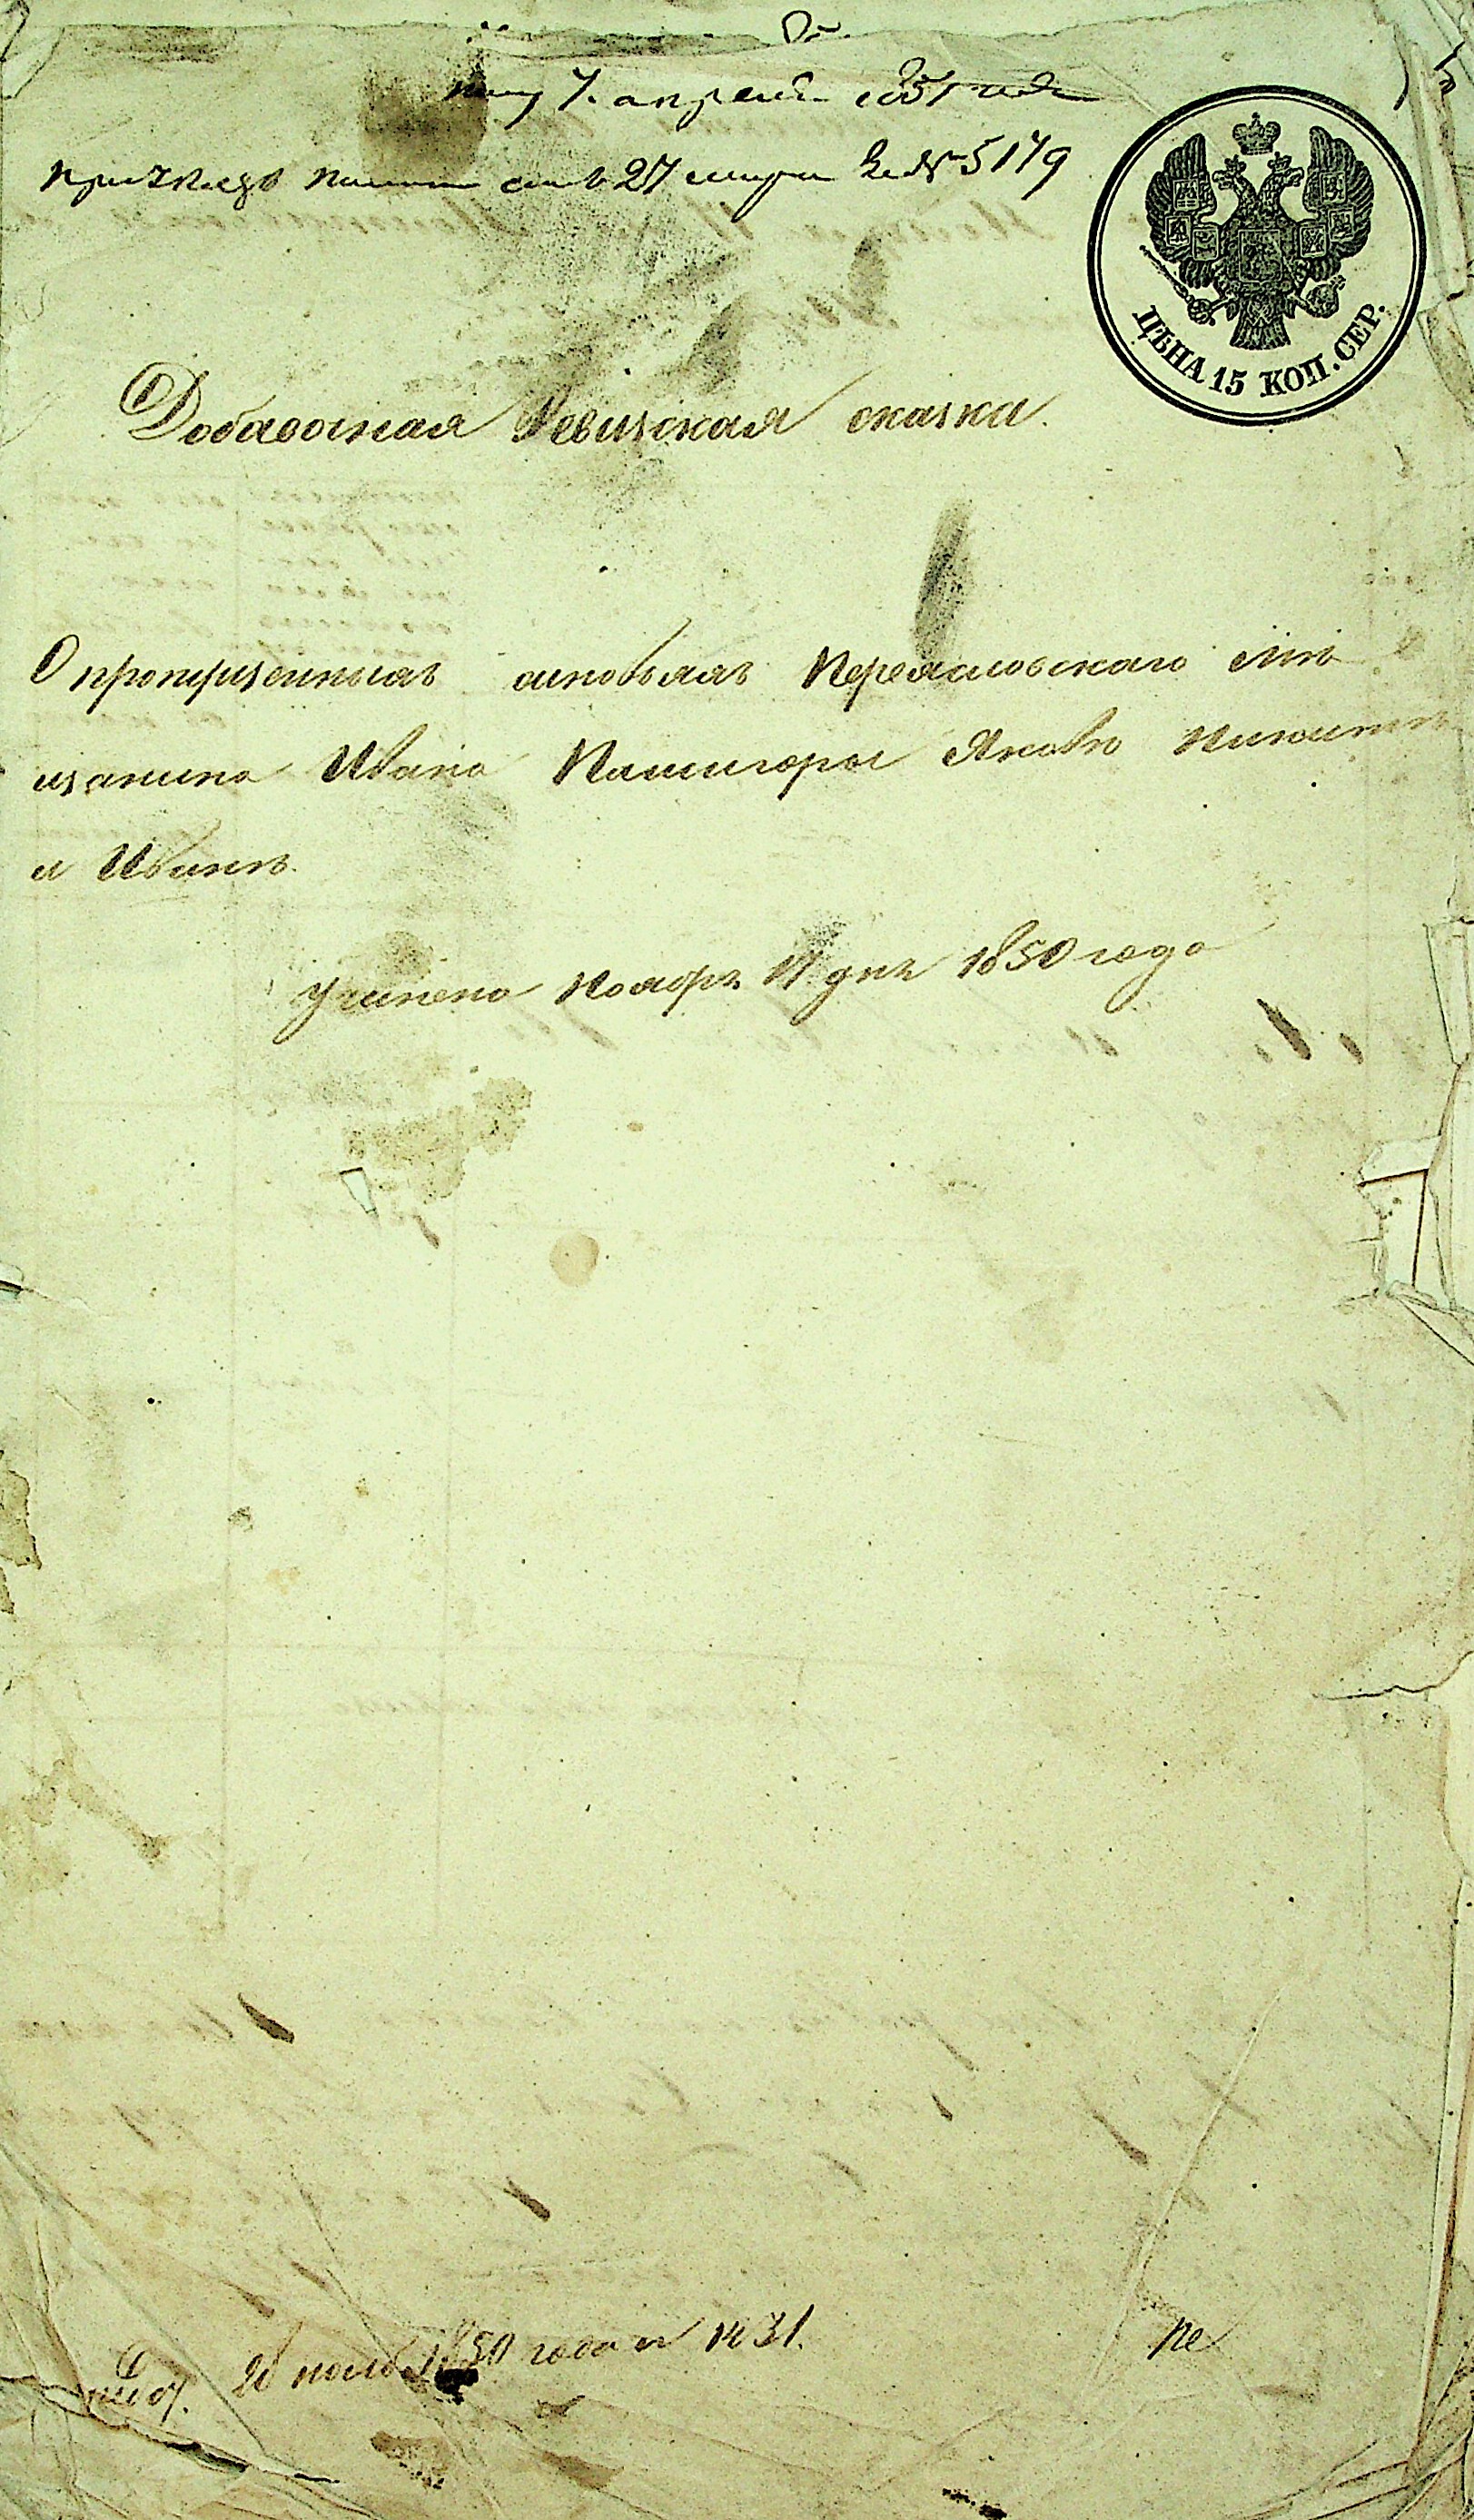 7. апреля 1851 года
при указе палаты отъ 27 марта За № 5179
ЦѢНА 15 КОП. СЕР.
Добавочная Ревизская сказка.
О пропущенныхъ сыновьяхъ Переясловскаго Мѣ
щанина Ивана Яковѣ Никитѣ
и Иванѣ.
Учинена Ноября 11 дня 1850 года
1850 года № 1431.